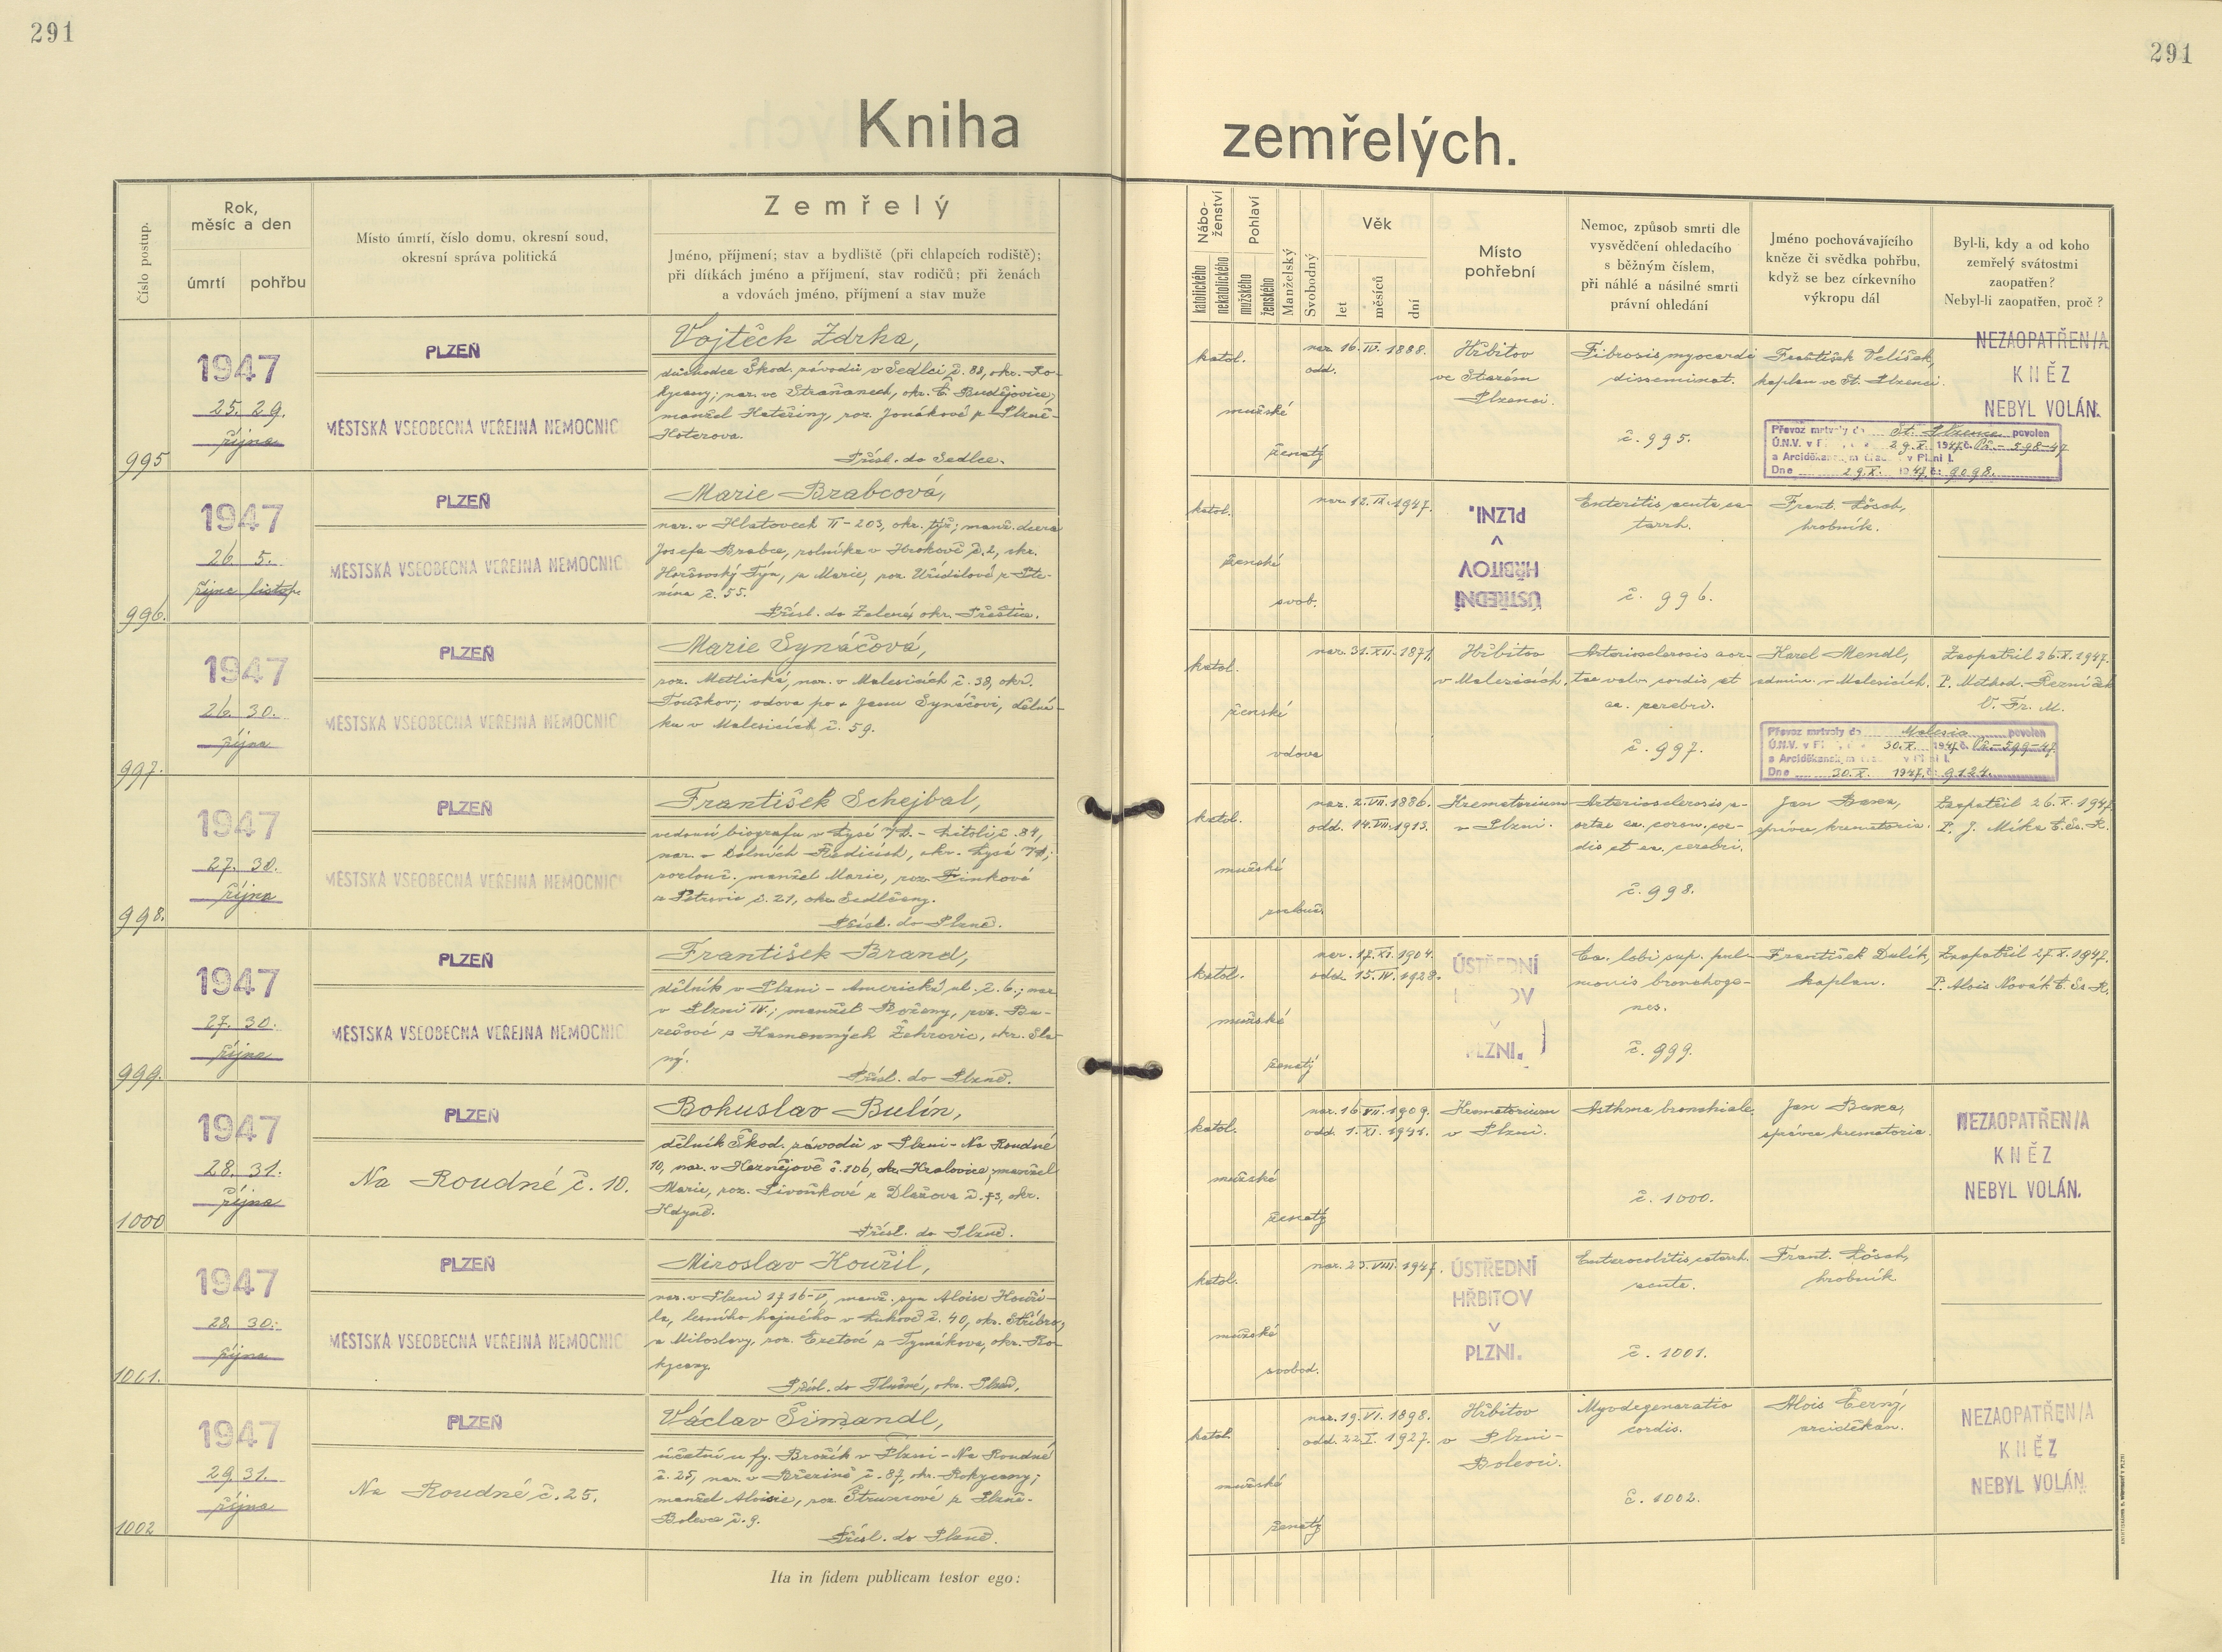 291
291
Kniha zemřelých.
Číslo postup.
Rok,
měsíc a den
úmrtí
pohřbu
Místo úmrtí, číslo domu, okresní soud,
okresní správa politická
Zemřelý
Jméno, příjmení; stav a bydliště (při chlapcích rodiště);
při dítkách jméno a příjmení, stav rodičů; při ženách
a vdovách jméno, příjmení a stav muže
Nábo-
ženství
katolického
nekatolického
Pohlaví
mužského
ženského
Manželský
Svobodný
Věk
let
měsíců
dní
Místo
pohřební
Nemoc, způsob smrti dle
vysvědčení ohledacího
s běžným číslem,
při náhlé a násilné smrti
právní ohledání
Jméno pochovávajícího
kněze či svědka pohřbu,
když se bez církevního
výkropu dál
Byl-li, kdy a od koho
zemřelý svátostmi
zaopatřen?
Nebyl-li zaopatřen, proč?
995
1947
25. 29.
října
PLZEŇ
MĚSTSKÁ VŠEOBECNÁ VEŘEJNÁ NEMOCNIC
Vojtěch Zdrha,
důchodce Škod. závodů v Sedlci č. 88, okr. Ro-
kycany; nar. ve Straňanech, okr. Č. Budějovice;
manžel Kateřiny, roz. Jonákové z Plzně-
Přísl. do Sedlce.
katol.
mužské
ženatý
nar. 16. IV. 1888.
odd.
Hřbitov
ve Starém
Plzenci.
Fibrosis myocardi
disseminat.
č. 995.
František Velíšek,
kaplan ve St. Plzenci.
NEZAOPATŘEN/A
KNĚZ
NEBYL VOLÁN.
Převoz mrtvoly do St. Plzence povolen
Ú.N.V. v Pl 29. X. 1947 č. Př.-598-47
a Arciděkanským úřad v Plzni I.
Dne 29. X. 1947 č: 9098.
996.
1947
26. 5.
října listop.
PLZEŇ
MĚSTSKÁ VŠEOBECNÁ VEŘEJNÁ NEMOCNIC
Marie Brabcová,
nar. v Hlatovech II-203, okr. týž; manž. dcera
Josefa Brabce, rolníka v Hrokově č. 2, okr.
Horšovský Týn, a Marie, roz. Uřídilové z Ste-
nína č. 55.
Přísl. do Zelené, okr. Přeštice.
katol.
ženské
svob.
nar. 12. IX. 1947.
ÚSTŘEDNÍ
HŘBITOV
V
PLZNI.
Enteritis acuta ca-
tarrh.
č. 996.
Frant. Lösch,
hrobník.
997.
1947
26. 30.
října
PLZEŇ
MĚSTSKÁ VŠEOBECNÁ VEŘEJNÁ NEMOCNIC
Marie Synáčová,
roz. Metlická, nar. v Malesicích č. 38, okr.
Touškov; vdova po + Janu Synáčovi, dělní-
ku v Malesicích č. 59.
katol.
ženské
vdova
nar. 31. XII. 1871.
Hřbitov
v Malesicích.
Arteriosclerosis aor-
tae valv. cordis et
aa. cerebri.
č. 997.
Karel Mendl,
admin. v Malesicích.
Zaopatřil 26. X. 1947.
P. Method. Řezníček
O. Fr. M.
Převoz mrtvoly do Malesic povolen
Ú.N.V. v Pl 30. X. 1947 č. Př.-599-47
a Arciděkanským úřad v Plzni I.
Dne 30. X. 1947 č: 9124.
998.
1947
27. 30.
října
PLZEŇ
MĚSTSKÁ VŠEOBECNÁ VEŘEJNÁ NEMOCNIC
František Schejbal,
vedoucí biografu v Lysé n/L. - Litoli č. 84,
nar. v Dolních Ředicích, okr. Lysá n/L;
rozlouč. manžel Marie, roz. Finkové
z Petrovic č. 21, okr. Sedlčany.
Přísl. do Plzně.
katol.
mužské
rozlouč.
nar. 2. VII. 1886.
odd. 14. VII. 1913.
Krematorium
v Plzni.
Arteriosclerosis a-
ortae aa. coron. cor-
dis et aa. cerebri.
č. 998.
Jan Baxa,
správce krematoria.
Zaopatřil 26. X. 1947.
P. J. Míka C. Ss. R.
999.
1947
27. 30.
října
PLZEŇ
MĚSTSKÁ VŠEOBECNÁ VEŘEJNÁ NEMOCNIC
František Brand,
dělník v Plzni - Americká ul. č. 6.; nar.
v Plzni IV.; manžel Boženy, roz. Bu-
rešové z Kamenných Žehrovic, okr. Sla-
ný.
Přísl. do Plzně.
katol.
mužské
ženatý
nar. 17. XI. 1904.
odd. 15. IV. 1928.
ÚSTŘEDNÍ
HŘBITOV
V
PLZNI.
Ca. lobi sup. pul-
monis bronchoge-
nes.
č. 999.
František Dulík,
kaplan.
Zaopatřil 27. X. 1947.
P. Alois Novák C. Ss. R.
1000
1947
28. 31.
října
PLZEŇ
Na Roudné č. 10.
Bohuslav Bulín,
dělník Škod. závodů v Plzni - Na Roudné
10, nar. v Kaznějově č. 106, okr. Kralovice; manžel
Marie, roz. Pivoňkové z Dlažova č. 73, okr.
Kdyně.
Přísl. do Plzně.
katol.
mužské
ženatý
nar. 16. VII. 1909.
odd. 1. XI. 1941.
Krematorium
v Plzni.
Asthma bronchiale.
č. 1000.
Jan Baxa,
správce krematoria.
NEZAOPATŘEN/A
KNĚZ
NEBYL VOLÁN.
1001.
1947
28. 30.
října
PLZEŇ
MĚSTSKÁ VŠEOBECNÁ VEŘEJNÁ NEMOCNIC
Miroslav Kouřil,
nar. v Plzni 1716-V, manž. syn Aloise Kouři-
la, lesního hajného v Lukově č. 40, okr. Stříbro,
a Miloslavy, roz. Eretové z Tymákova, okr. Ro-
kycany.
Přísl. do Tlučné, okr. Plzeň.
katol.
mužské
svobod.
nar. 23. VIII. 1947.
ÚSTŘEDNÍ
HŘBITOV
V
PLZNI.
Enterocolitis catarrh.
acuta.
č. 1001.
Frant. Lösch,
hrobník
1002
1947
29. 31.
října
PLZEŇ
Na Roudné č. 25.
Václav Šimandl,
účetní u fy. Brožík v Plzni - Na Roudné
č. 25, nar. v Březině č. 87, okr. Rokycany;
manžel Aloisie, roz. Štruncové z Plzně-
Bolevce č. 9.
Přísl. do Plzně.
katol.
mužské
ženatý
nar. 19. VI. 1898.
odd. 22. I. 1927.
Hřbitov
v Plzni-
Bolevci.
Myodegeneratio
cordis.
č. 1002.
Alois Černý,
arciděkan.
NEZAOPATŘEN/A
KNĚZ
NEBYL VOLÁN.
Ita in fidem publicam testor ego: